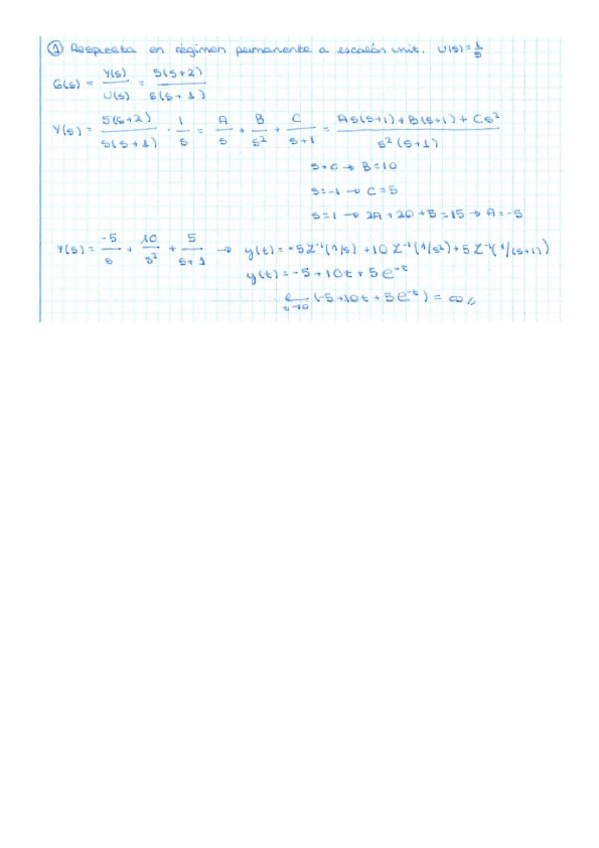 ① Respuesta en régimen permanente a escalón unit. U(s)=1/s
G(s) = Y(s)/U(s) = 5(s+2)/s(s+1)
Y(s) = 5(s+2)/s(s+1) · 1/s = A/s + B/s² + C/s+1 = As(s+1)+B(s+1)+Cs²/s²(s+1)
s=0 → B=10
s=-1 → C=5
s=1 → 2A+20+5=15 → A=-5
Y(s) = -5/s + 10/s² + 5/s+1 → y(t) = -5ℒ⁻¹(1/s) +10ℒ⁻¹(1/s²)+5ℒ⁻¹(1/(s+1))
y(t) = -5+10t+5e⁻ᵗ
(-5+10t+5e⁻ᵗ) = ∞//